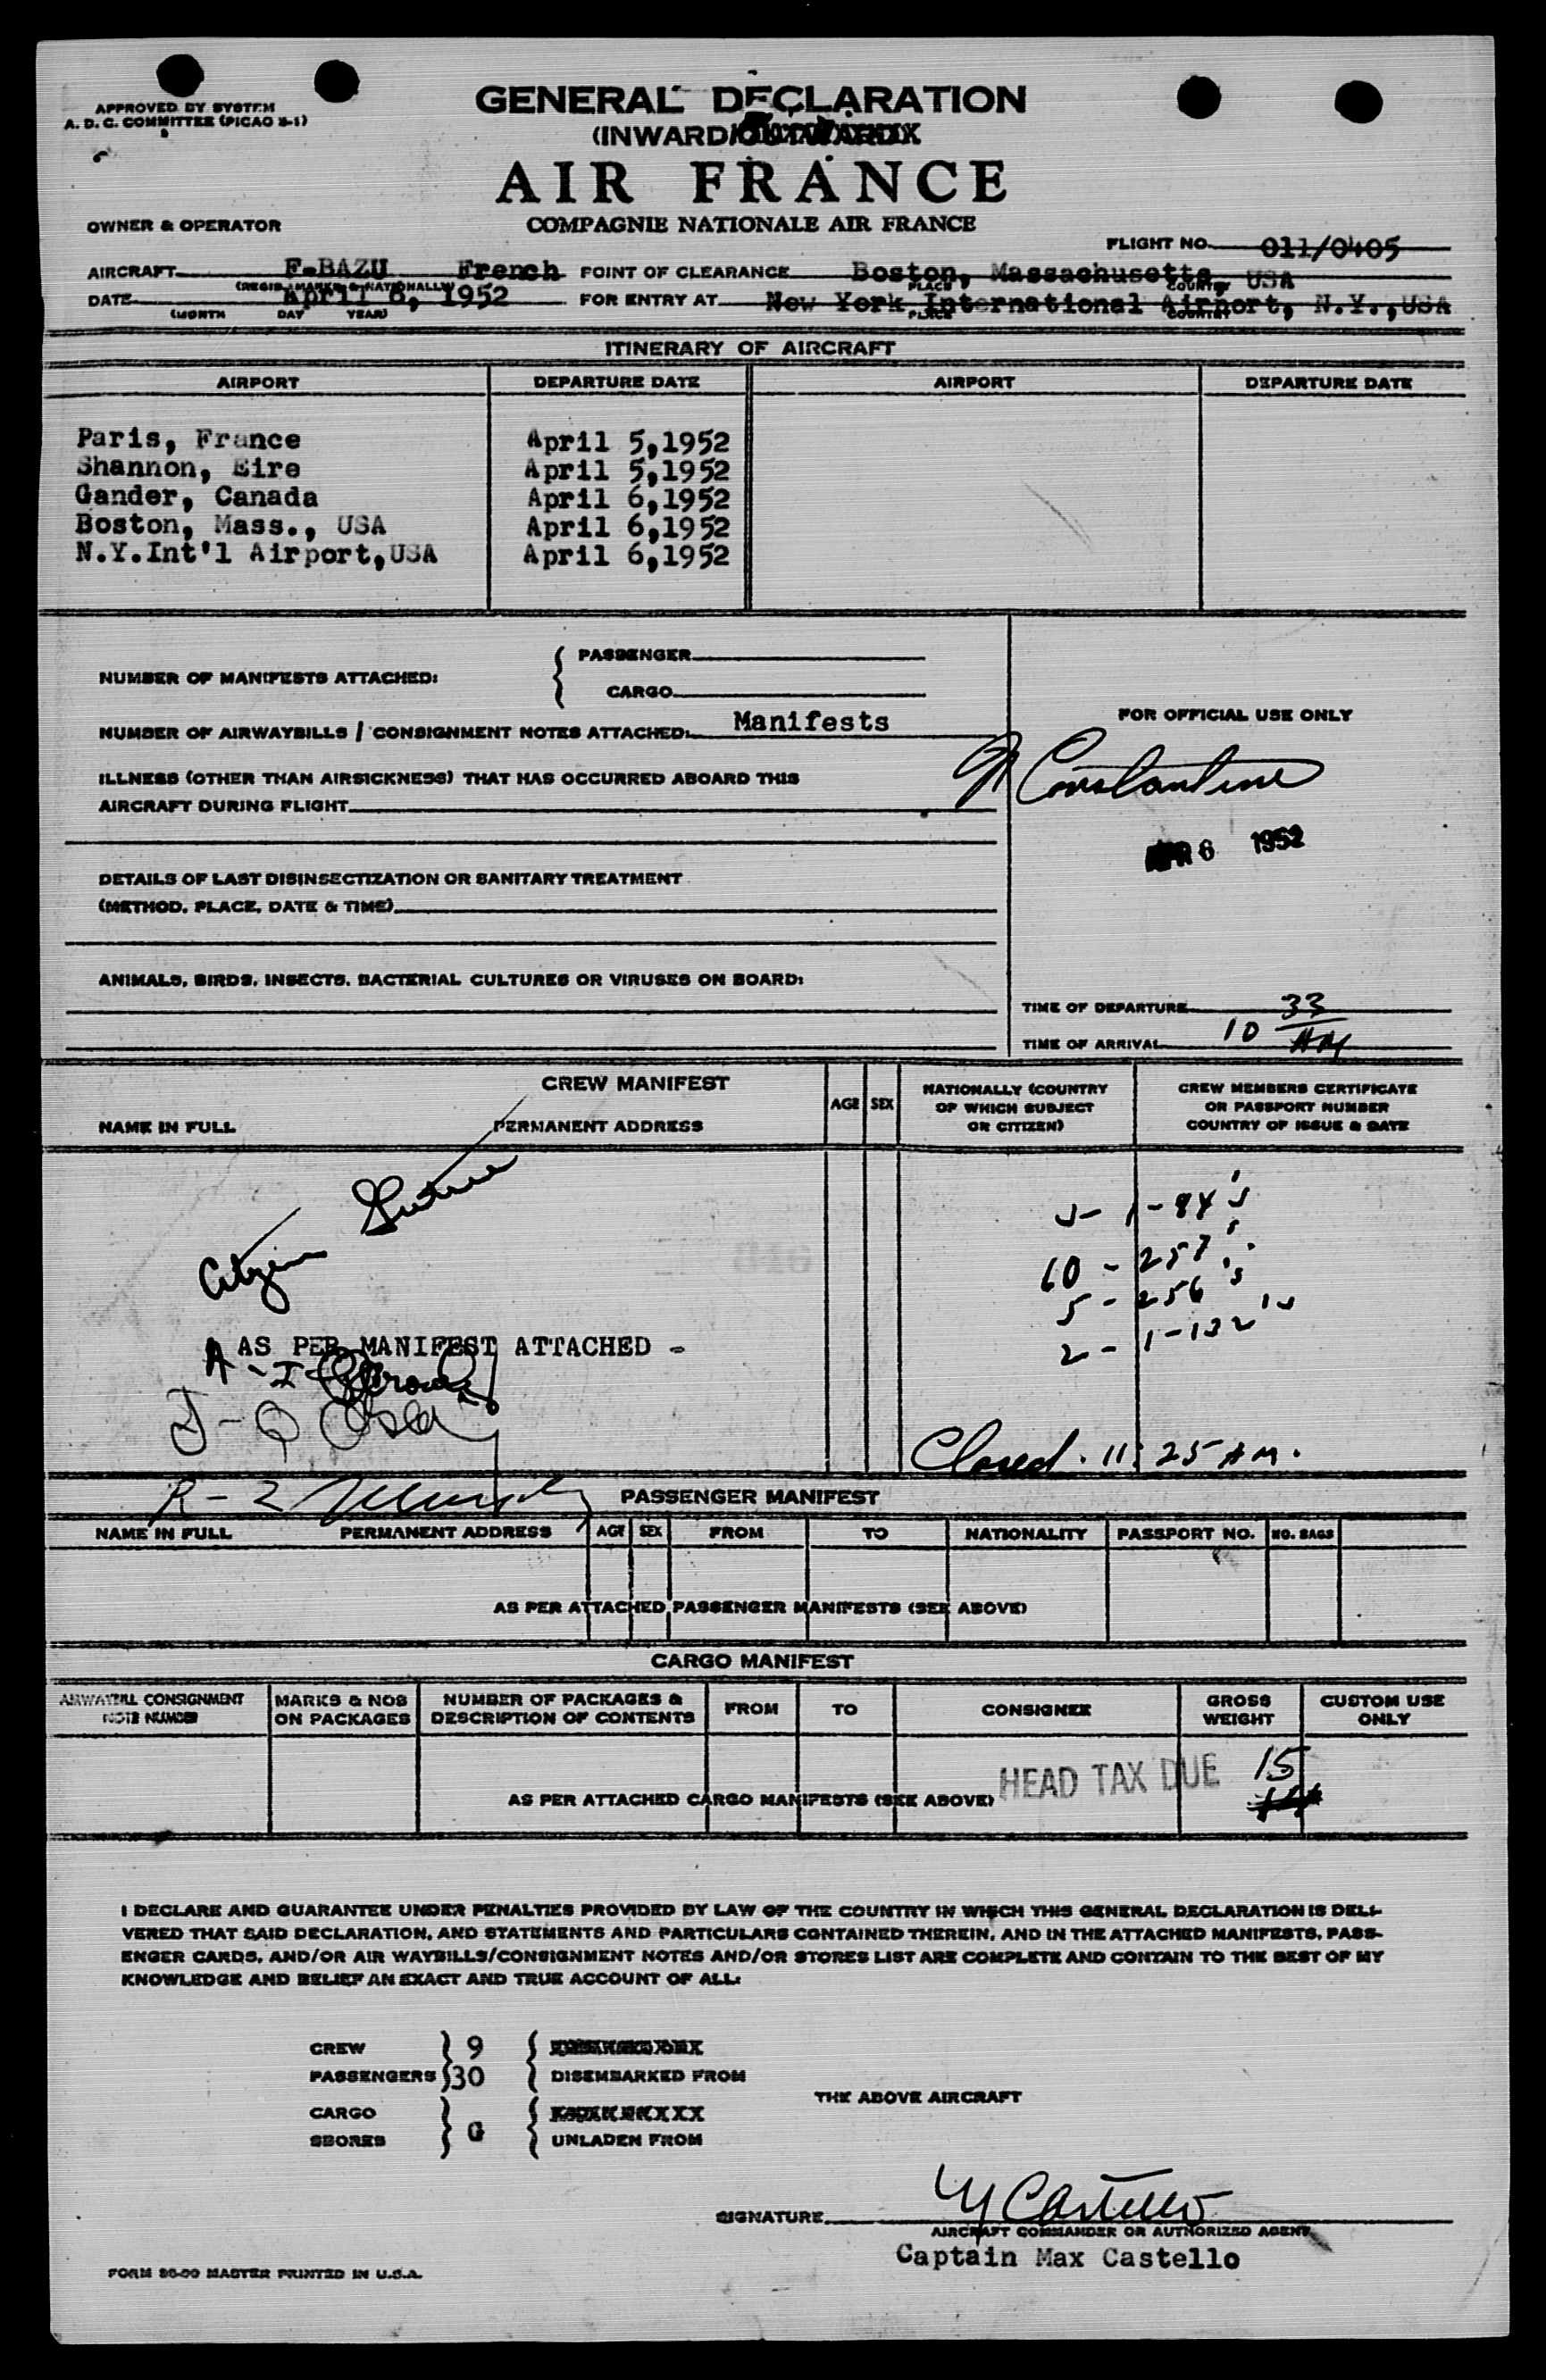 APPROVED BY SYSTEM
A. D. C. COMMITTEE (PICAO 2-1)
GENERAL DECLARATION
(INWARD/OUTWARD)
AIR FRANCE
OWNER & OPERATOR
COMPAGNIE NATIONALE AIR FRANCE
FLIGHT NO. 011/0405
AIRCRAFT F-BAZU French POINT OF CLEARANCE Boston, Massachusetts, USA
(REGIS. MARKS & NATIONALLY) PLACE COUNTRY
DATE April 6, 1952 FOR ENTRY AT New York International Airport, N.Y.,USA
(MONTH DAY YEAR) PLACE COUNTRY
ITINERARY OF AIRCRAFT
AIRPORT DEPARTURE DATE AIRPORT DEPARTURE DATE
Paris, France April 5,1952
Shannon, Eire April 5,1952
Gander, Canada April 6,1952
Boston, Mass., USA April 6,1952
N.Y.Int'l Airport,USA April 6,1952
NUMBER OF MANIFESTS ATTACHED: PASSENGER
CARGO
NUMBER OF AIRWAYBILLS / CONSIGNMENT NOTES ATTACHED: Manifests
FOR OFFICIAL USE ONLY
Constantine
ILLNESS (OTHER THAN AIRSICKNESS) THAT HAS OCCURRED ABOARD THIS
AIRCRAFT DURING FLIGHT
APR 6 1952
DETAILS OF LAST DISINSECTIZATION OR SANITARY TREATMENT
(METHOD, PLACE, DATE & TIME)
ANIMALS, BIRDS, INSECTS, BACTERIAL CULTURES OR VIRUSES ON BOARD:
TIME OF DEPARTURE
TIME OF ARRIVAL 10 33 AM
CREW MANIFEST
NAME IN FULL PERMANENT ADDRESS AGE SEX NATIONALLY (COUNTRY OF WHICH SUBJECT OR CITIZEN) CREW MEMBERS CERTIFICATE OR PASSPORT NUMBER COUNTRY OF ISSUE & DATE
Citizen
10 - 257's
5 - 256's
2 - 1-132's
AS PER MANIFEST ATTACHED -
A - I
J - Q
Closed. 11:25 AM.
R - Z
PASSENGER MANIFEST
NAME IN FULL PERMANENT ADDRESS AGE SEX FROM TO NATIONALITY PASSPORT NO. NO. BAGS
AS PER ATTACHED PASSENGER MANIFESTS (SEE ABOVE)
CARGO MANIFEST
AIRWAYBILL CONSIGNMENT NOTE NUMBER MARKS & NOS ON PACKAGES NUMBER OF PACKAGES & DESCRIPTION OF CONTENTS FROM TO CONSIGNEE GROSS WEIGHT CUSTOM USE ONLY
HEAD TAX DUE 15
AS PER ATTACHED CARGO MANIFESTS (SEE ABOVE)
I DECLARE AND GUARANTEE UNDER PENALTIES PROVIDED BY LAW OF THE COUNTRY IN WHICH THIS GENERAL DECLARATION IS DELI-
VERED THAT SAID DECLARATION, AND STATEMENTS AND PARTICULARS CONTAINED THEREIN, AND IN THE ATTACHED MANIFESTS, PASS-
ENGER CARDS, AND/OR AIR WAYBILLS/CONSIGNMENT NOTES AND/OR STORES LIST ARE COMPLETE AND CONTAIN TO THE BEST OF MY
KNOWLEDGE AND BELIEF AN EXACT AND TRUE ACCOUNT OF ALL:
CREW 9
PASSENGERS 30 DISEMBARKED FROM
THE ABOVE AIRCRAFT
CARGO
SBORES G UNLADEN FROM
SIGNATURE M Castello
AIRCRAFT COMMANDER OR AUTHORIZED AGENT
Captain Max Castello
FORM 86-50 MASTER PRINTED IN U.S.A.